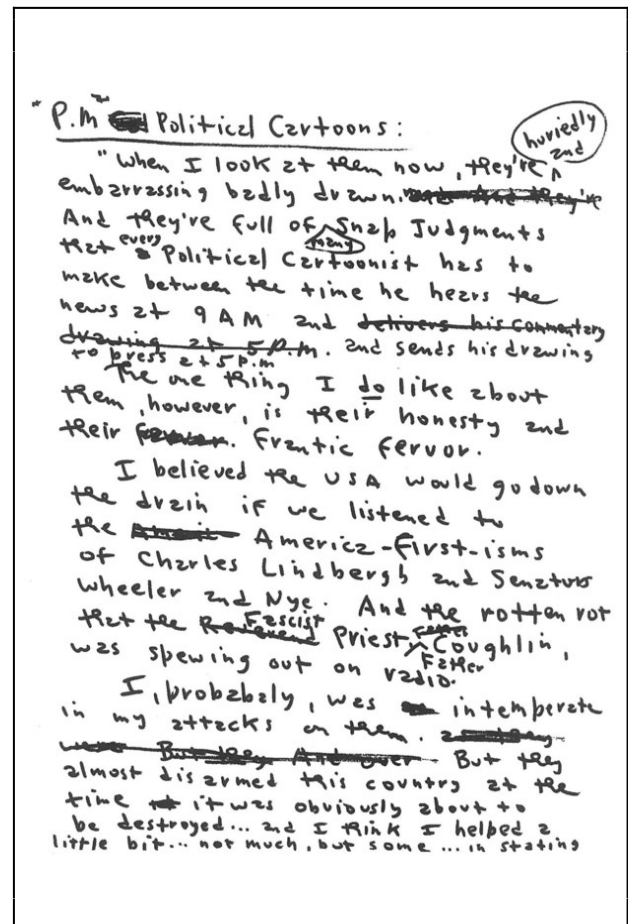 "P.M" Political Cartoons:
huriedly and
"When I look at them now, they're ^
embarrassing badly drawn. and And they're
And they're full of many Snap Judgments
that every Political Cartoonist has to
make between the time he hears the
news at 9 AM and delivers his commentary
drawing at 5 P.M. and sends his drawing
to press at 5 P.m
The one thing I do like about
them, however, is their honesty and
their fervor. Frantic fervor.
I believed the USA would go down
the drain if we listened to
the America-first-isms
of Charles Lindbergh and Senators
Wheeler and Nye. And the rotten rot
that the Reverend Fascist Priest Father Coughlin,
was spewing out on radio.
Father
I, probabaly, was intemperate
in my attacks on them. and they
were But they And over But they
almost disarmed this country at the
time it was obviously about to
be destroyed... and I think I helped a
little bit... not much, but some ... in stating